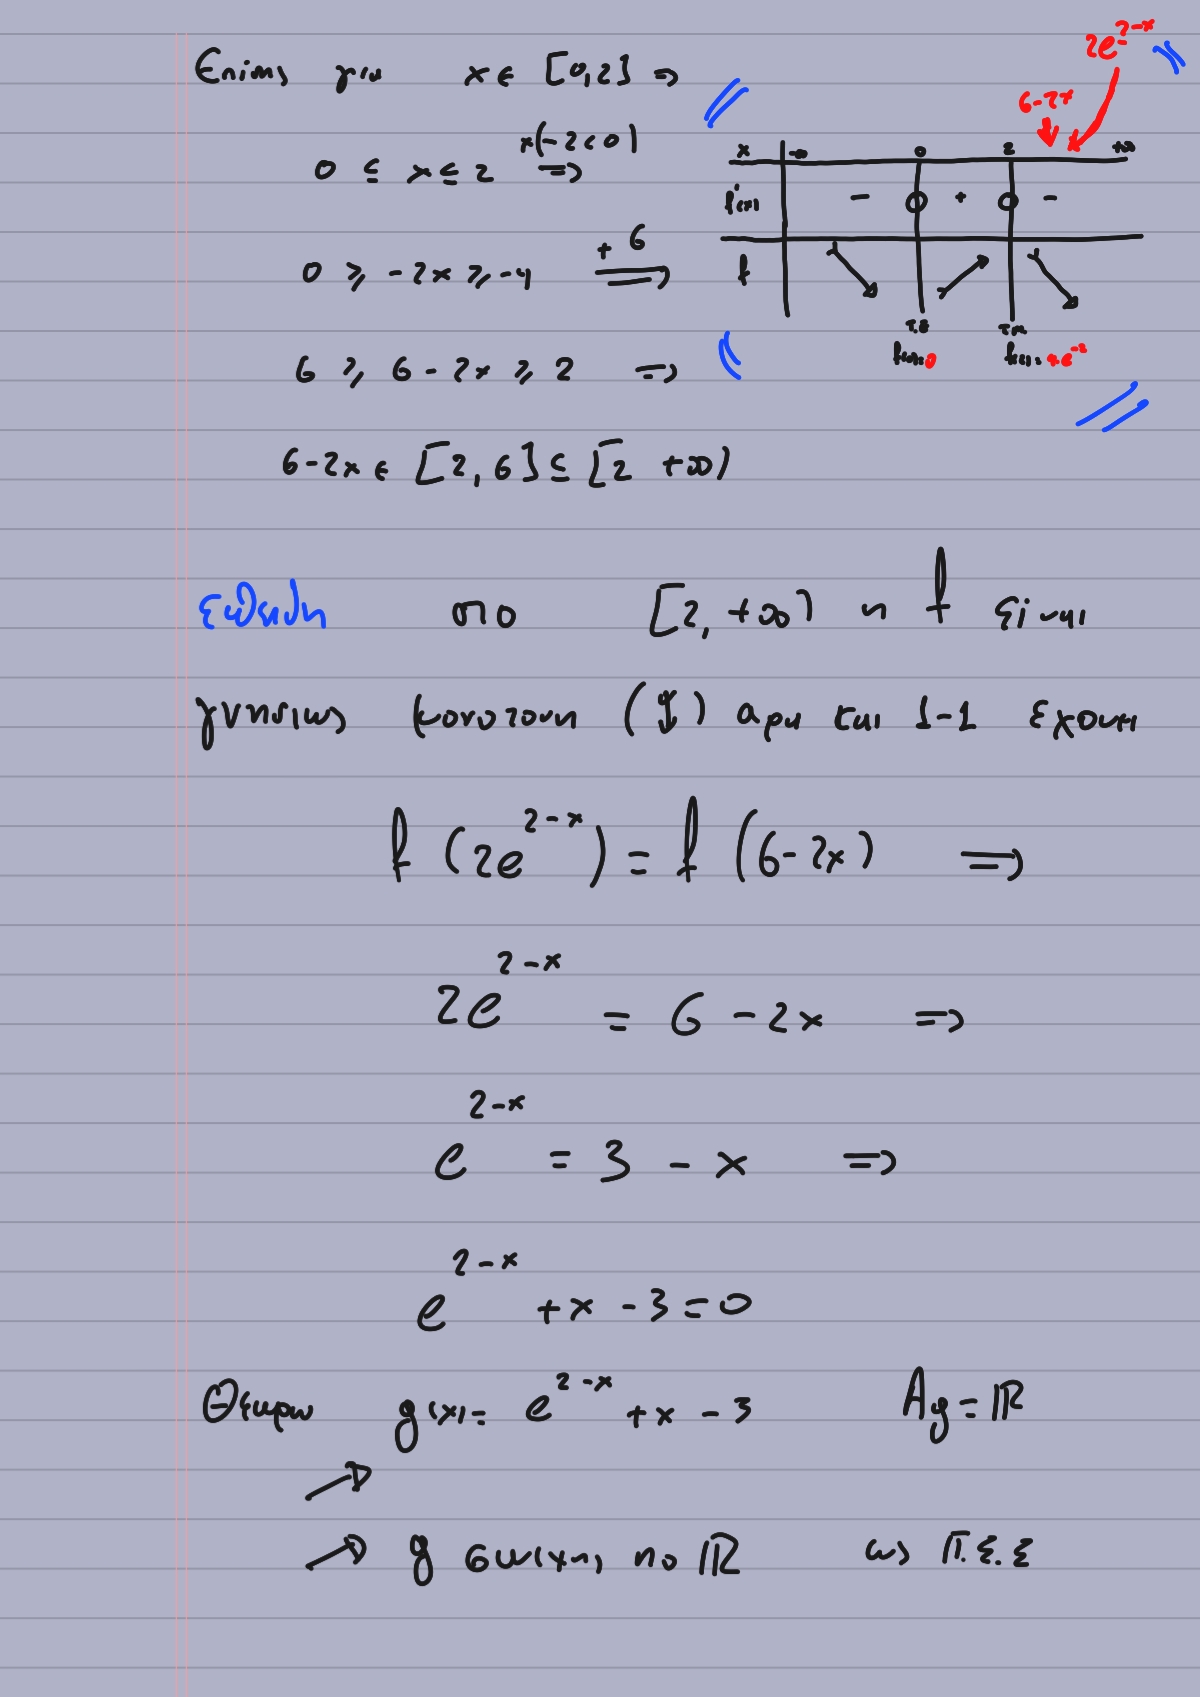 Επίσης για x ∈ [0,2] ⇒
0 ≤ x ≤ 2 x(-2<0) ⇒
0 ≥ -2x ≥ -4 +6 ⇒
6 ≥ 6-2x ≥ 2 ⇒
6-2x ∈ [2,6] ⊆ [2 +∞)
2e^{2-x}
6-2x
x -∞ 0 2 +∞
f'(x) - 0 + 0 -
f ↘ ↗ ↘
τ.ε τ.μ
f(0)=0 f(2)=4e^{-2}
επειδή στο [2, +∞) η f είναι
γνησίως μονοτονη (↓) αρα και 1-1 εχουμε
f(2e^{2-x}) = f(6-2x) ⇒
2e^{2-x} = 6-2x ⇒
e^{2-x} = 3-x ⇒
e^{2-x} +x-3=0
Θεωρω g(x)= e^{2-x} +x-3 Ag=ℝ
→
→ g συνεχης στο ℝ ως Π.Σ.Σ